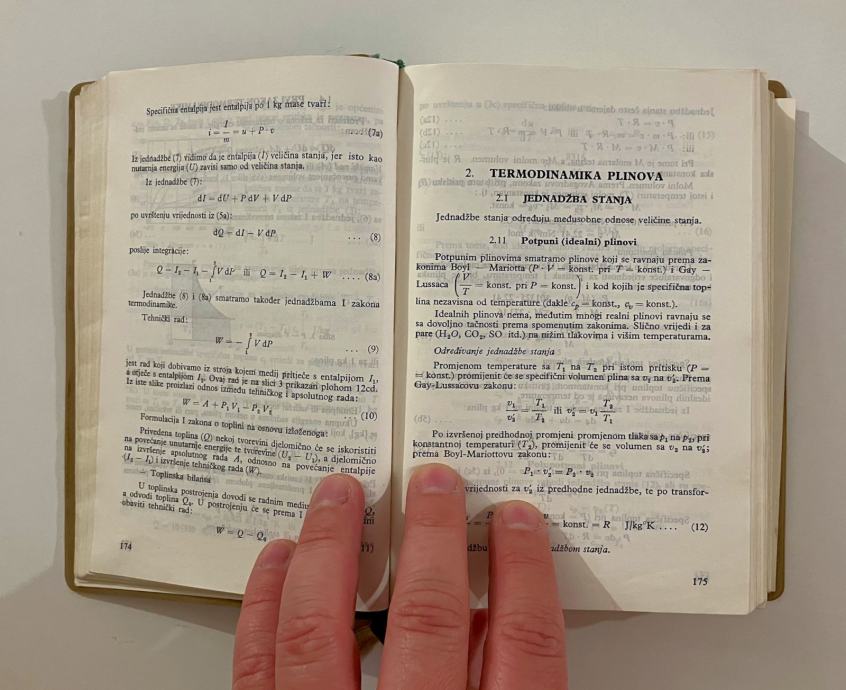 Specifična entalpija jest entalpija po 1 kg mase tvari:
i = I/m = u + P · v (7a)
Iz jednadžbe (7) vidimo da je entalpija (I) veličina stanja, jer isto kao
nutarnja energija (U) zavisi samo od veličina stanja.
Iz jednadžbe (7):
dI = dU + P dV + V dP
po uvrštenju vrijednosti iz (5a):
dQ = dI − V dP ... (8)
poslije integracije:
Q = I₂ − I₁ − ∫V dP ili Q = I₂ − I₁ + W ... (8a)
Jednadžbe (8) i (8a) smatramo također jednadžbama I zakona
termodinamike.
Tehnički rad:
W = − ∫ V dP ... (9)
jest rad koji dobivamo iz stroja kojem medij pritječe s entalpijom I₁,
a otječe s entalpijom I₂. Ovaj rad je na slici 3 prikazan plohom 12cd.
Iz iste slike proizlazi odnos između tehničkog i apsolutnog rada:
W = A + P₁ V₁ − P₂ V₂ ... (10)
Formulacija I zakona o toplini na osnovu izloženoga:
Privedena toplina (Q) nekoj tvorevini djelomično će se iskoristiti
na povećanje unutarnje energije te tvorevine (U₂ − U₁), a djelomično
na izvršenje apsolutnog rada A, odnosno na povećanje entalpije
(I₂ − I₁) i izvršenje tehničkog rada (W).
— Toplinska bilansa
U toplinska postrojenja dovodi se radnim mediju Q,
a odvodi toplina Q₀. U postrojenju će se prema I
obaviti tehnički rad:
W = Q − Q₀ 11)
174
2. TERMODINAMIKA PLINOVA
2.1 JEDNADŽBA STANJA
Jednadžbe stanja određuju međusobne odnose veličine stanja.
2.11 Potpuni (idealni) plinovi
Potpunim plinovima smatramo plinove koji se ravnaju prema za-
konima Boyl — Mariotta (P · V = konst. pri T = konst.) i Gay —
Lussaca (V/T = konst. pri P = konst.) i kod kojih je specifična top-
lina nezavisna od temperature (dakle cₚ = konst., cᵥ = konst.).
Idealnih plinova nema, međutim mnogi realni plinovi ravnaju se
sa dovoljno tačnosti prema spomenutim zakonima. Slično vrijedi i za
pare (H₂O, CO₂, SO itd.) na nižim tlakovima i višim temperaturama.
Određivanje jednadžbe stanja
Promjenom temperature sa T₁ na T₂ pri istom pritisku (P =
= konst.) promijenit će se specifični volumen plina sa v₁ na v₂'. Prema
Gay-Lussacovu zakonu:
v₁/v₂' = T₁/T₂ ili v₂' = v₁ T₂/T₁
Po izvršenoj predhodnoj promjeni promjenom tlaka sa p₁ na p₂, pri
konstantnoj temperaturi (T₂), promijenit će se volumen sa v₂ na v₂';
prema Boyl-Mariottovu zakonu:
P₁ · v₂' = P₂ · v₂
vrijednosti za v₂' iz predhodne jednadžbe, te po transfor-
= konst. = R J/kg°K .... (12)
adžbom stanja.
175